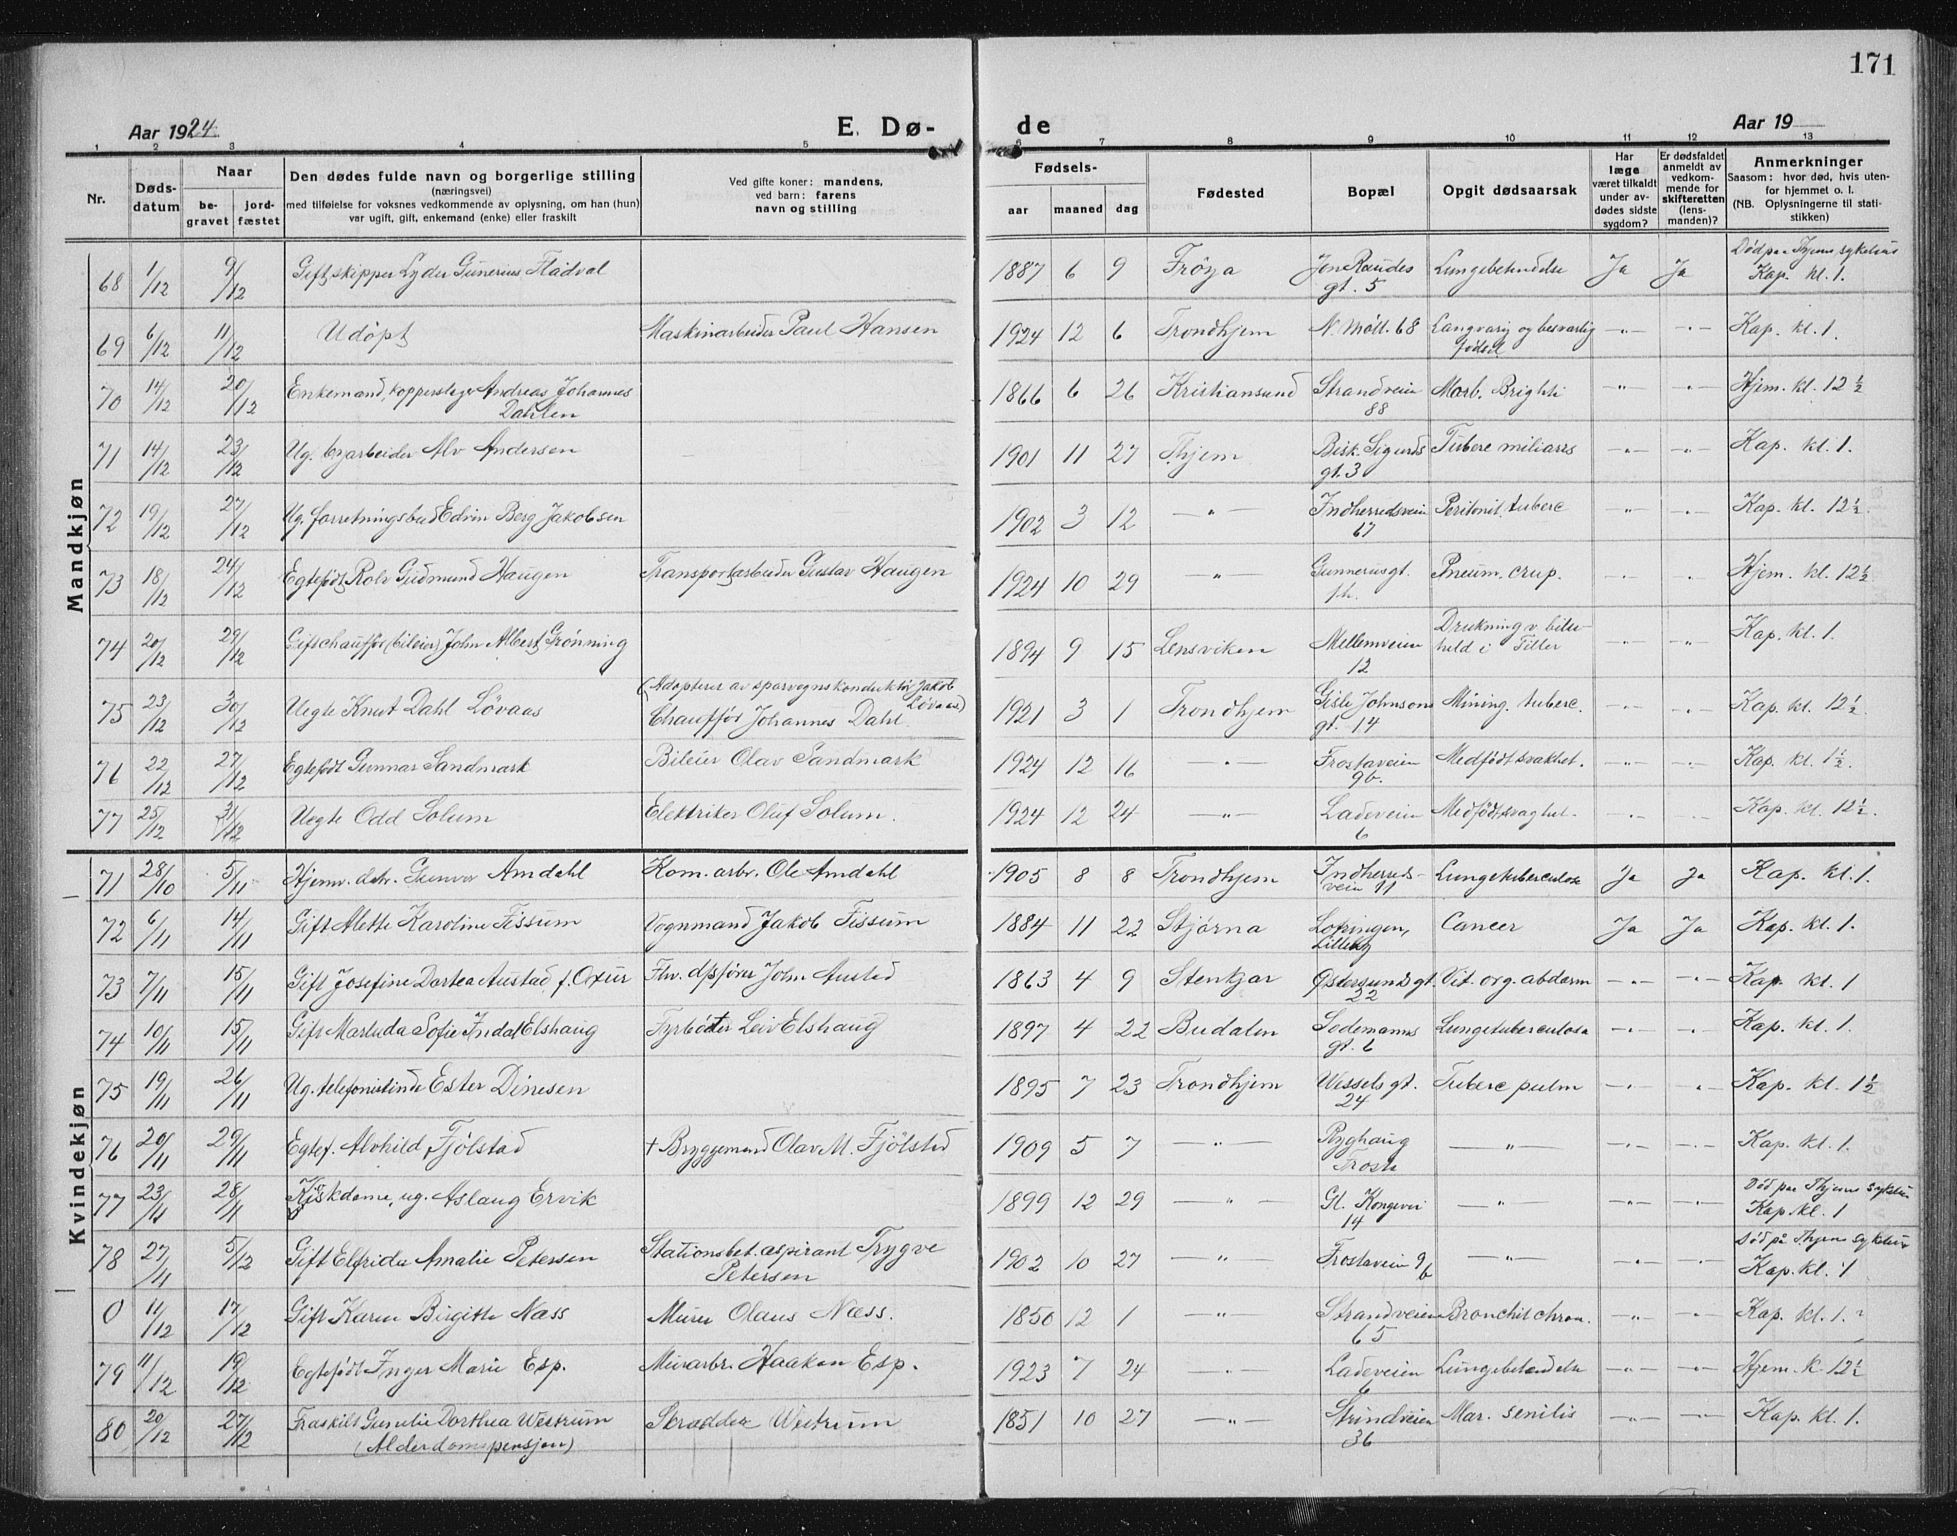 171
Aar 1924
E. Dø-
de
Aar 19
1 2 3 4 5 6 7 8 9 10 11 12 13
Nr. | Døds-datum | Naar be-gravet | jord-fæstet | Den dødes fulde navn og borgerlige stilling (næringsvei) med tilføielse for voksnes vedkommende av oplysning, om han (hun) var ugift, gift, enkemand (enke) eller fraskilt | Ved gifte koner: mandens, ved barn: farens navn og stilling | Fødsels- aar | maaned | dag | Fødested | Bopæl | Opgit dødsaarsak | Har læge været tilkaldt under av-dødes sidste sygdom? | Er dødsfaldet anmeldt av vedkom-mende for skifteretten (lens-manden)? | Anmerkninger Saasom: hvor død, hvis uten-for hjemmet o. l. (NB. Oplysningerne til stati-stikken)
Mandkjøn
68 | 1/12 | 9/12 | Gift skipper Lyder Gunerius Flådval | | 1887 | 6 | 9 | Frøya | Jon Raudes gt. 5 | Lungebetendelse | Ja | Ja | Død paa Thjems sykehus Kap. kl. 1.
69 | 6/12 | 11/12 | Udøpt | Maskinarbeider Paul Hansen | 1924 | 12 | 6 | Trondhjem | N. Møll. 68 | Langvarig og besværlig fødsel | -„- | -„- | Kap. kl. 1.
70 | 14/12 | 20/12 | Enkemand, kopperslager Andreas Johannes Dahlen | | 1866 | 6 | 26 | Kristiansund | Strandveien 88 | Morb. Brighti | -„- | -„- | Hjem. kl. 12 1/2
71 | 14/12 | 23/12 | Ug. byarbeider Alv Andersen | | 1901 | 11 | 27 | Thjem | Bisk. Sigurds gt. 3 | Tuberc miliaris | -„- | -„- | Kap. kl. 1.
72 | 19/12 | 27/12 | Ug. forretningsbud Edvin Berg Jakobsen | | 1902 | 3 | 12 | -„- | Indherredsveien 67 | Peritonit. tuberc | -„- | -„- | Kap. kl. 12 1/2
73 | 18/12 | 24/12 | Egtefødt Rolv Gudmund Haugen | Transportarbeider Gustav Haugen | 1924 | 10 | 29 | -„- | Gunnerusgt. | Pneum. crup. | -„- | -„- | Hjem. kl. 12 1/2
74 | 20/12 | 29/12 | Gift chauffør (bileier) John Albert Grønning | | 1894 | 9 | 15 | Lensviken | Mellemveien 12 | Drukning v. biluheld i Tiller | -„- | -„- | Kap. kl. 1.
75 | 23/12 | 30/12 | Uegte Knut Dahl Løvaas | (Adopteret av sporvognskonduktør Jakob Løvaas) Chauffør Johannes Dahl. | 1921 | 3 | 1 | Trondhjem | Gisle Johnsons gt. 14 | Mining. tuberc. | -„- | -„- | Kap. kl. 12 1/2
76 | 22/12 | 27/12 | Egtefødt Gunnar Sandmark | Bileier Olav Sandmark | 1924 | 12 | 16 | -„- | Frostaveien 9b. | Medfødt svakhet. | -„- | -„- | Kap. kl. 1 1/2.
77 | 25/12 | 31/12 | Uegte Odd Solum | Elektriker Oluf Solum. | 1924 | 12 | 24 | -„- | Ladeveien 6 | Medfødt svaghet. | -„- | -„- | Kap. kl. 12 1/2.
Kvindekjøn
71 | 28/10 | 5/11 | Hjemv. dtr. Gunvor Amdahl | Kom. arbr. Ole Amdahl | 1905 | 8 | 8 | Trondhjem | Indherreds-veien 11 | Lungetuberculose | Ja | Ja | Kap. kl. 1.
72 | 6/11 | 14/11 | Gift Alette Karoline Fissum | Vognmand Jakob Fissum | 1884 | 11 | 22 | Stjørna | Lofringen, Lilleby | Cancer | Ja | Ja | Kap. kl. 1.
73 | 7/11 | 15/11 | Gift Josefine Dortea Austad f. Oxur | Fhv. dpfører John Austad | 1863 | 4 | 9 | Stenkjær | Østersunds gt. 22 | Vit. org. abdorm | -„- | -„- | Kap. kl. 1
74 | 10/11 | 15/11 | Gift Marluda Sofie Indal Elshaug | Fyrbøter Leiv Elshaug | 1897 | 4 | 22 | Budalen | Sodemanns gt. 6 | Lungetuberculose | -„- | -„- | Kap. kl. 1.
75 | 19/11 | 26/11 | Ug. telefonistinde Ester Dinesen | | 1895 | 7 | 23 | Trondhjem | Wessels gt. 24 | Tuberc pulm | -„- | -„- | Kap. kl. 1 1/2
76 | 20/11 | 29/11 | Egtef. Alvhild Fjølstad | + Bryggemand Olav M. Fjølstad | 1909 | 5 | 7 | -„- | Ryghaug Frosta | -„- | -„- | -„- | Kap. kl. 1.
77 | 23/11 | 28/11 | Kioskdame, ug. Aslaug Ervik | | 1899 | 12 | 29 | -„- | Gl. Kongevei 14 | -„- | -„- | -„- | Død paa Thjems sykehus Kap. kl. 1
78 | 27/11 | 5/12 | Gift Elfrida Amalie Petersen | Stationsbet. aspirant Trygve Petersen | 1902 | 10 | 27 | -„- | Frostaveien 9b | -„- | -„- | -„- | Død på Thjems sykehus Kap. kl. 1
0 | 11/12 | 17/12 | Gift Karen Birgitte Næss | Murer Olaus Næss. | 1850 | 12 | 1 | -„- | Strandveien 65 | Bronchit chron. | -„- | -„- | Kap. kl. 1.
79 | 11/12 | 19/12 | Egtefødt Inger Marie Esp. | Murarbr. Haakon Esp. | 1923 | 7 | 24 | -„- | Ladeveien 6 | Lungebetændelse | -„- | -„- | Hjem. k. 12 1/2
80 | 20/12 | 27/12 | Fraskilt Gunelie Dorthea Westrum (Alderdomspensjon) | Skrædder Westrum | 1851 | 10 | 27 | -„- | Strindveien 36 | Mar. senilis | -„- | -„- | Kap. kl. 1.